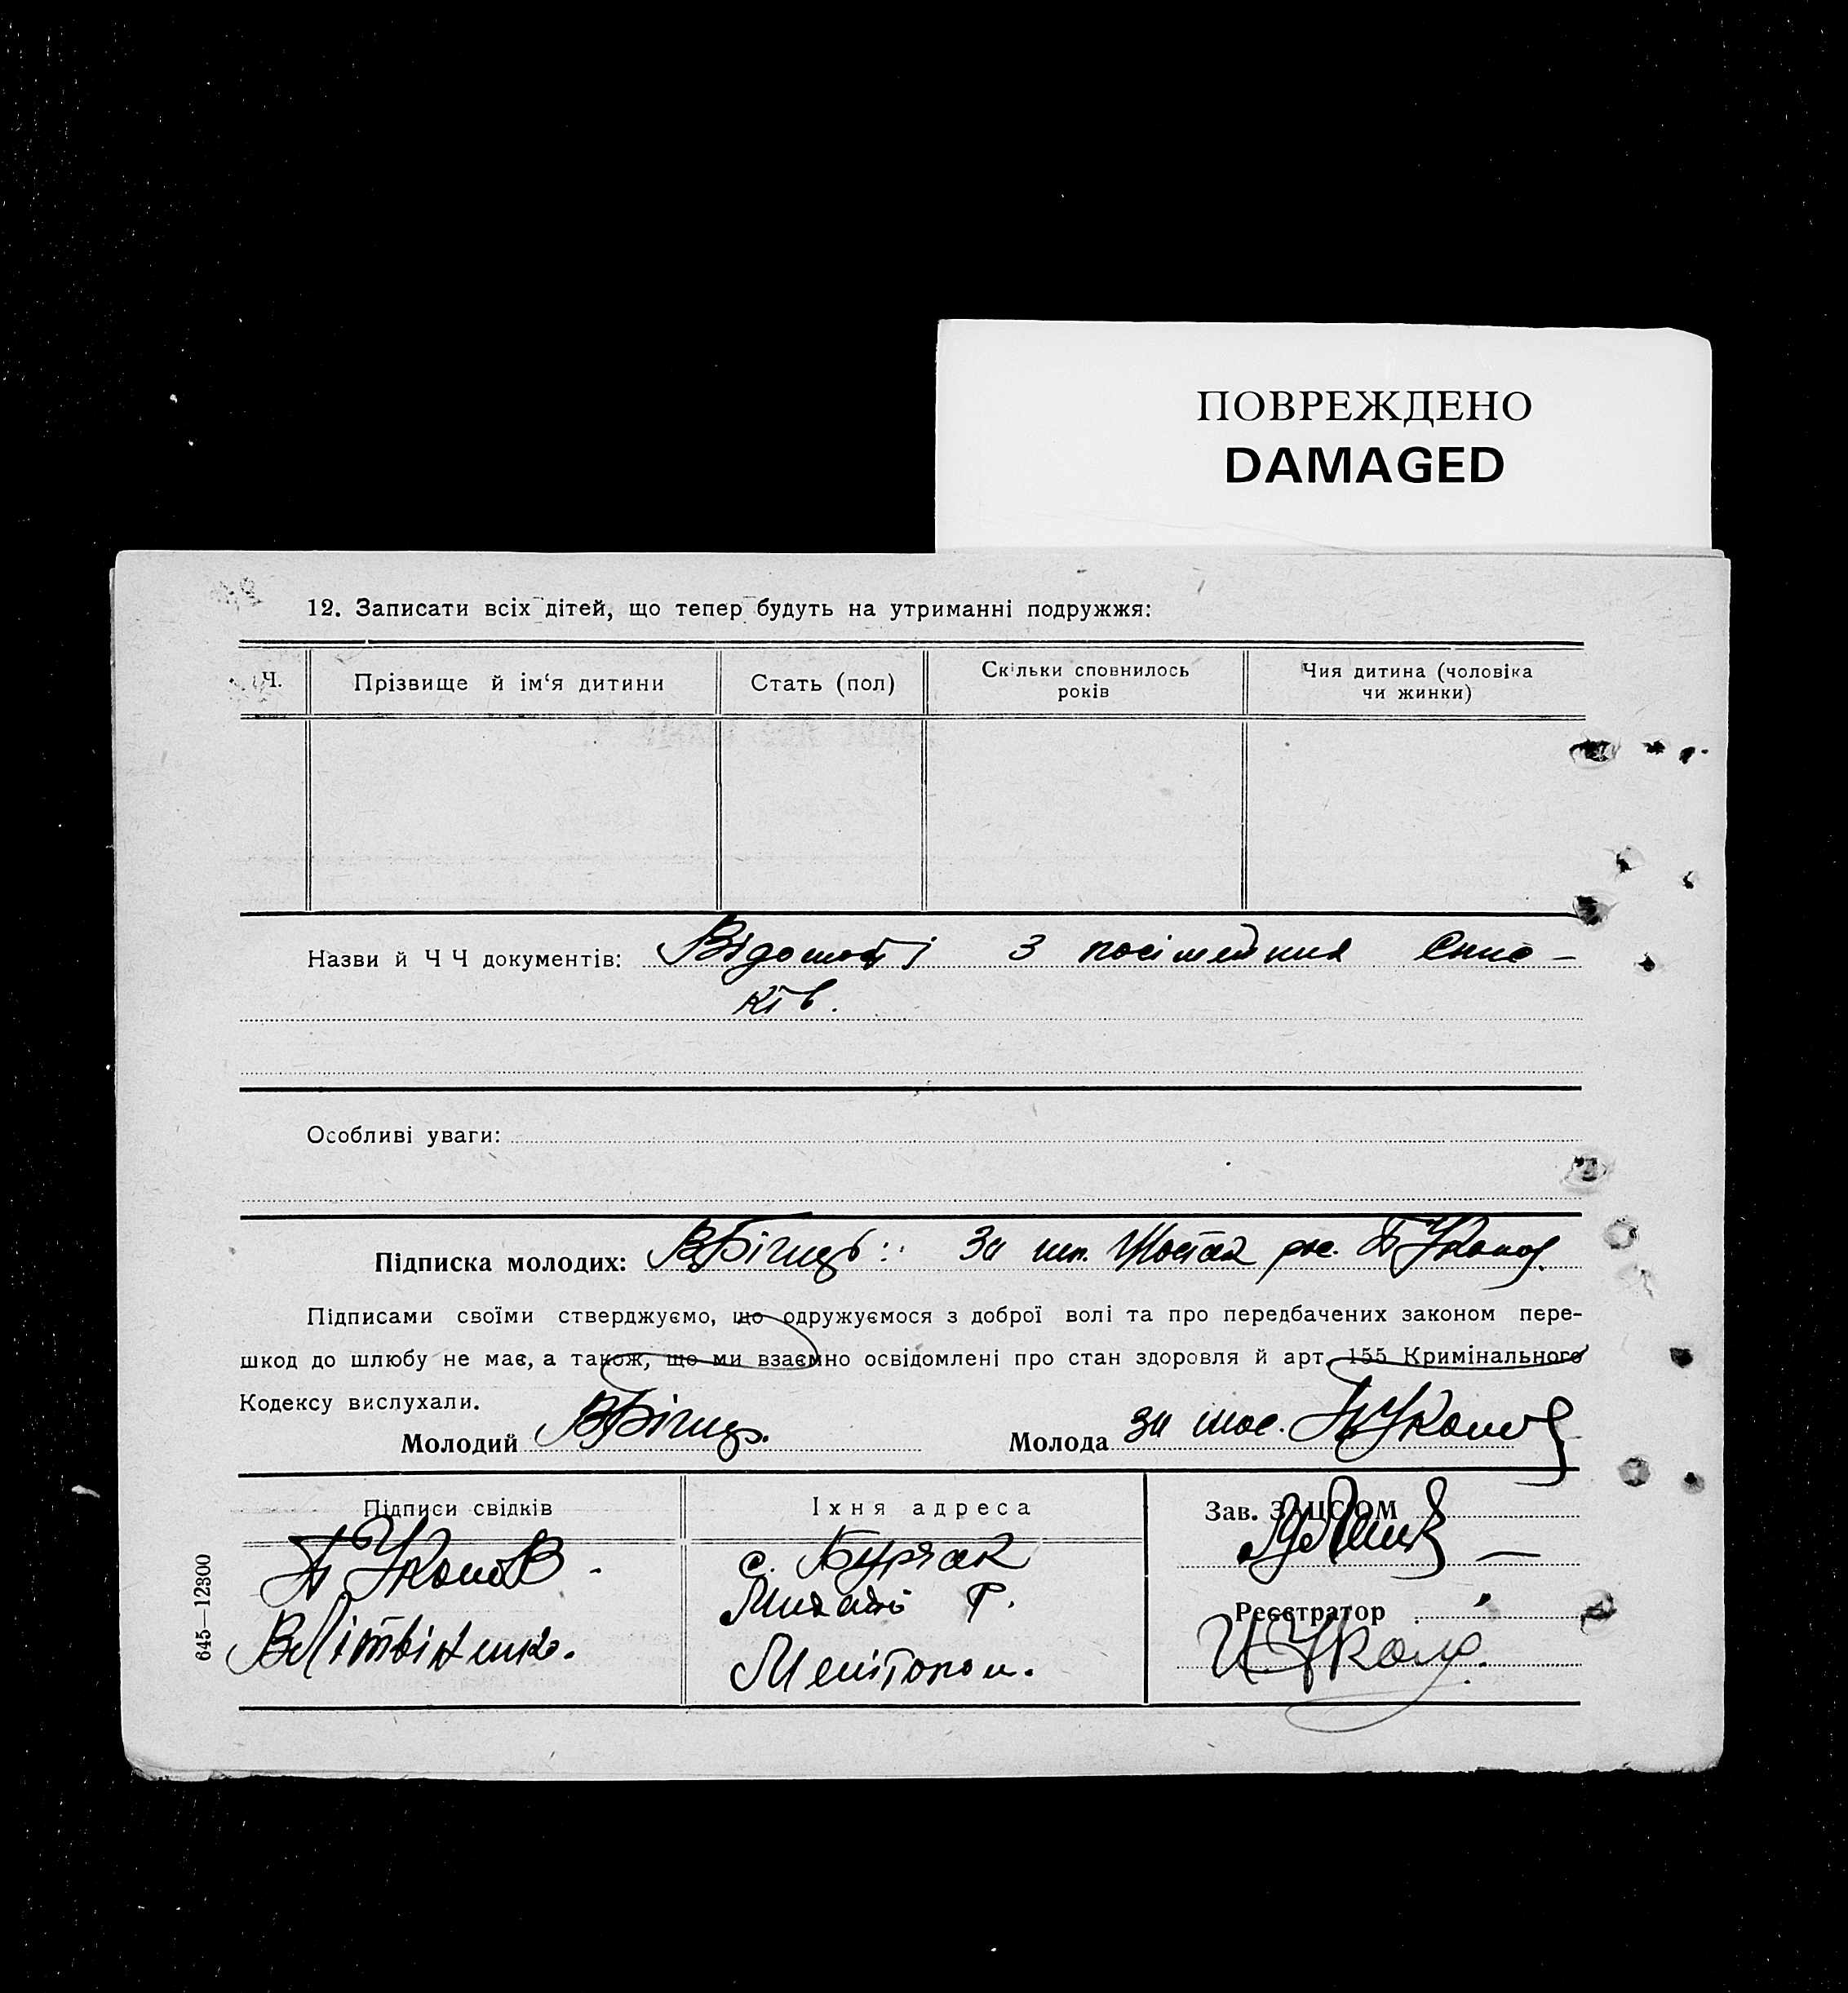 ПОВРЕЖДЕНО
DAMAGED
12. Записати всіх дітей, що тепер будуть на утриманні подружжя:
Ч.
Прізвище й ім‘я дитини
Стать (пол)
Скільки сповнилось
років
Чия дитина (чоловіка
чи жинки)
Назви й Ч Ч документів: Відомості з посімейних спис-
ків.
Особливі уваги:
Підписка молодих: За
Підписами своїми стверджуємо, що одружуємося з доброї волі та про передбачених законом пере-
шкод до шлюбу не має, а також, що ми взаємно освідомлені про стан здоровля й арт. 155 Кримінального
Кодексу вислухали.
Молодий
Молода за
Підписи свідків
Їхня адреса
Зав. ЗАЦС‘ОМ
с. Буряк
В Літвіненко.
Реєстратор
645—12300